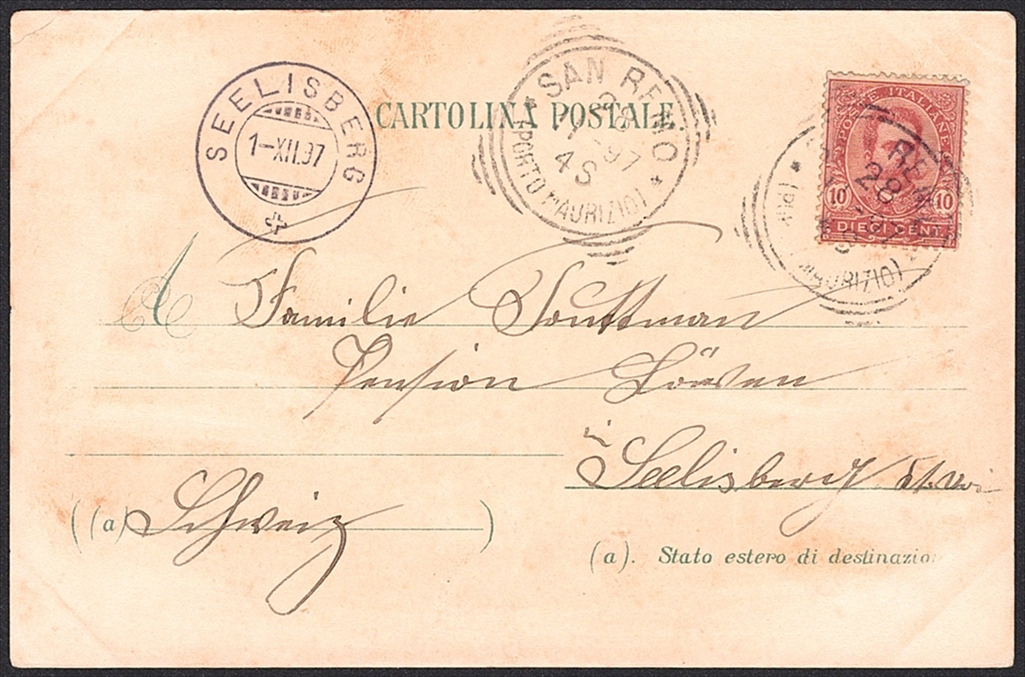 SEELISBERG
1-XII.97
CARTOLINA POSTALE
SAN REMO
28
97
4S
(PORTO MAURIZIO)
POSTE ITALIANE
10 10
DIECI CENT.
REMO
28
MAURIZIO)
A
Familie
Pension Löwen
in
Seelisberg
(a) Schweiz )
(a). Stato estero di destinazion